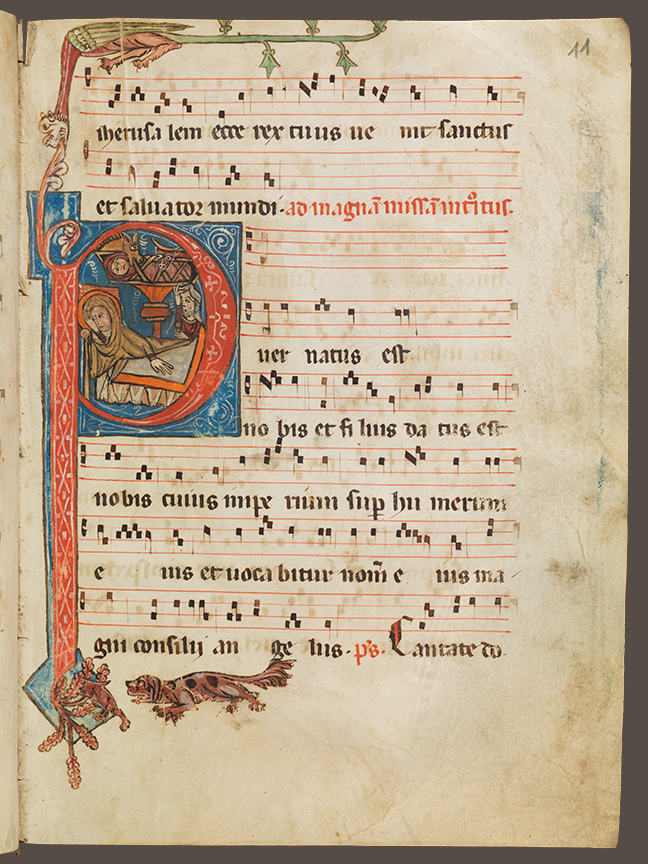 11
iherusa lem ecce rex tuus ue nit sanctus
et saluator mundi. ad magnā missā introitus.
P uer natus est
no bis et fi lius da tus est
nobis cuius impe rium sup hu merum
e ius et uoca bitur nom̄ e ius ma
gni consilii an ge lus. ps. Cantate do